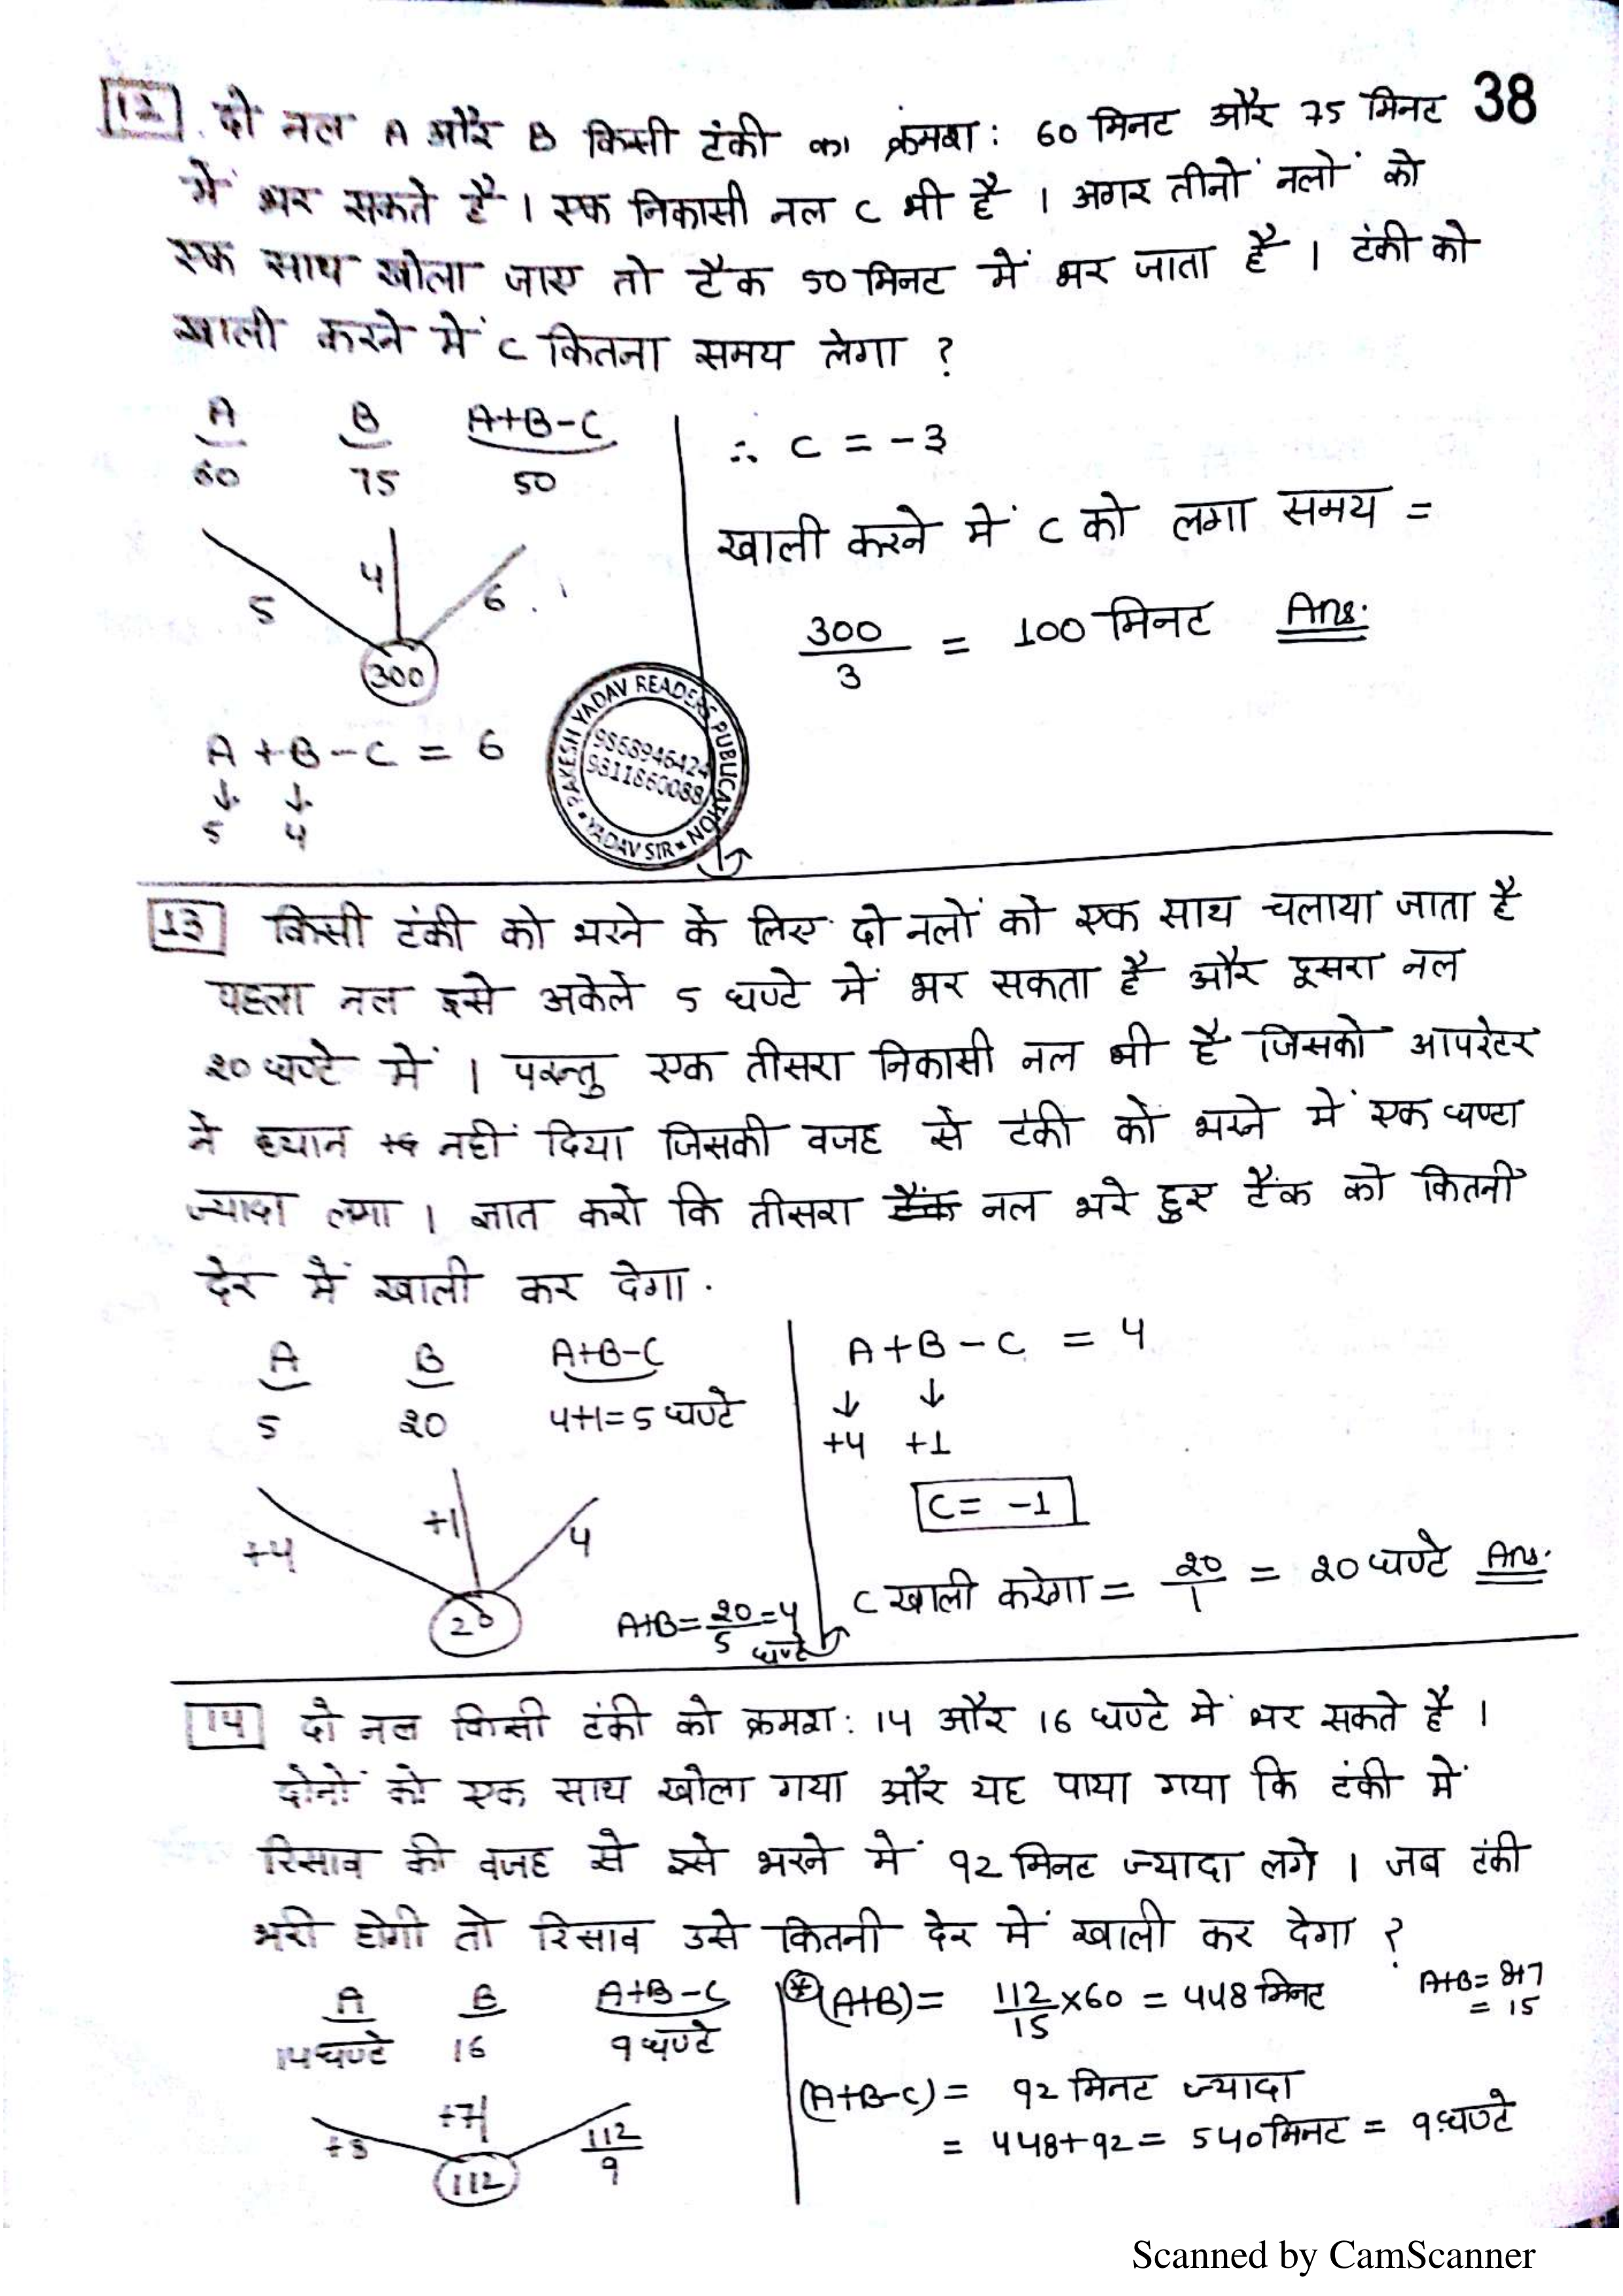 38
12 दो नल A और B किसी टंकी का क्रमश: 60 मिनट और 75 मिनट
में भर सकते है। एक निकासी नल C भी है। अगर तीनों नलों को
एक साथ खोला जाए तो टैंक 50 मिनट में भर जाता है। टंकी को
खाली करने में C कितना समय लेगा ?
A B A+B-C
60 75 50
5 4 6
300
A+B-C = 6
↓ ↓
5 4
∴ C = -3
खाली करने में C को लगा समय =
300/3 = 100 मिनट Ans.
RAKESH YADAV READERS PUBLICATION
9868946424
9811860088
YADAV SIR
13 किसी टंकी को भरने के लिए दो नलों को एक साथ चलाया जाता है
पहला नल इसे अकेले 5 घण्टे में भर सकता है और दूसरा नल
20 घण्टे में। परन्तु एक तीसरा निकासी नल भी है जिसको आपरेटर
ने ध्यान नहीं दिया जिसकी वजह से टंकी को भरने में एक घण्टा
ज्यादा लगा। ज्ञात करो कि तीसरा टैंक नल भरे हुए टैंक को कितनी
देर में खाली कर देगा.
A B A+B-C
5 20 4+1=5 घण्टे
+4 +1 4
20
A+B= 20/5 =4 घण्टे
A+B-C = 4
↓ ↓
+4 +1
C= -1
C खाली करेगा = 20/1 = 20 घण्टे Ans.
14 दो नल किसी टंकी को क्रमश: 14 और 16 घण्टे में भर सकते है।
दोनों को एक साथ खोला गया और यह पाया गया कि टंकी में
रिसाव की वजह से इसे भरने में 92 मिनट ज्यादा लगे। जब टंकी
भरी होगी तो रिसाव उसे कितनी देर में खाली कर देगा ?
A B A+B-C
14 घण्टे 16 9 घण्टे
+8 +7 112/9
112
(A+B)= 112/15 x60 = 448 मिनट
A+B= 8+7
= 15
(A+B-C)= 92 मिनट ज्यादा
= 448+92= 540 मिनट = 9 घण्टे
Scanned by CamScanner